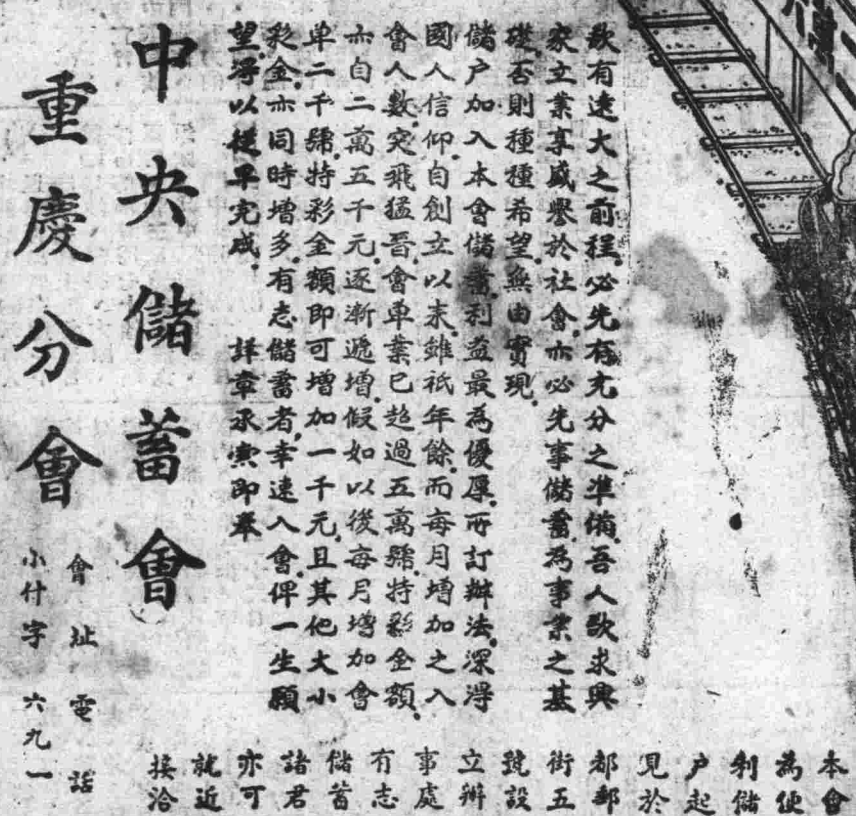 欲有遠大之前程，必先有充分之準備，吾人欲求興
家立業享盛譽於社會，亦必先事儲蓄，為事業之基
礎，否則種種希望，無由實現，
儲户加入本會儲蓄，利益最為優厚，所訂辦法，深得
國人信仰，自創立以來，雖祇年餘，而每月增加之入
會人數，突飛猛晋，會单業已超過五萬號，特彩金額，
亦自二萬五千元，逐漸遞增，假如以後每月增加會
单二千號，特彩金額即可增加一千元，且其他大小
彩金，亦同時增多，有志儲蓄者，幸速入會，俾一生願
望，得以從早完成， 詳章承索即奉
中央儲蓄會
重慶分會
會址 電話
小什字 六九一
本會
為便
利儲
户起
見於
都郵
街五
號設
立辦
事處
有志
儲蓄
諸君
亦可
就近
接洽